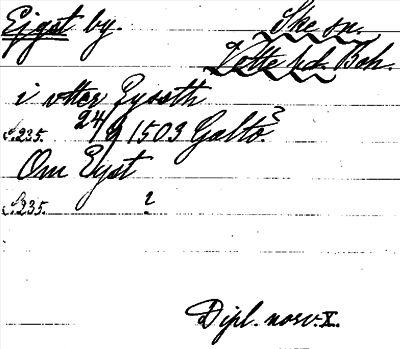 Ejgst by.
Ske sn.
Vette hd. Boh.
i vtter Eysth
S.235. 24/9 1503 Galtö
Om Eyst
S.235. ?
Dipl. norv. X.